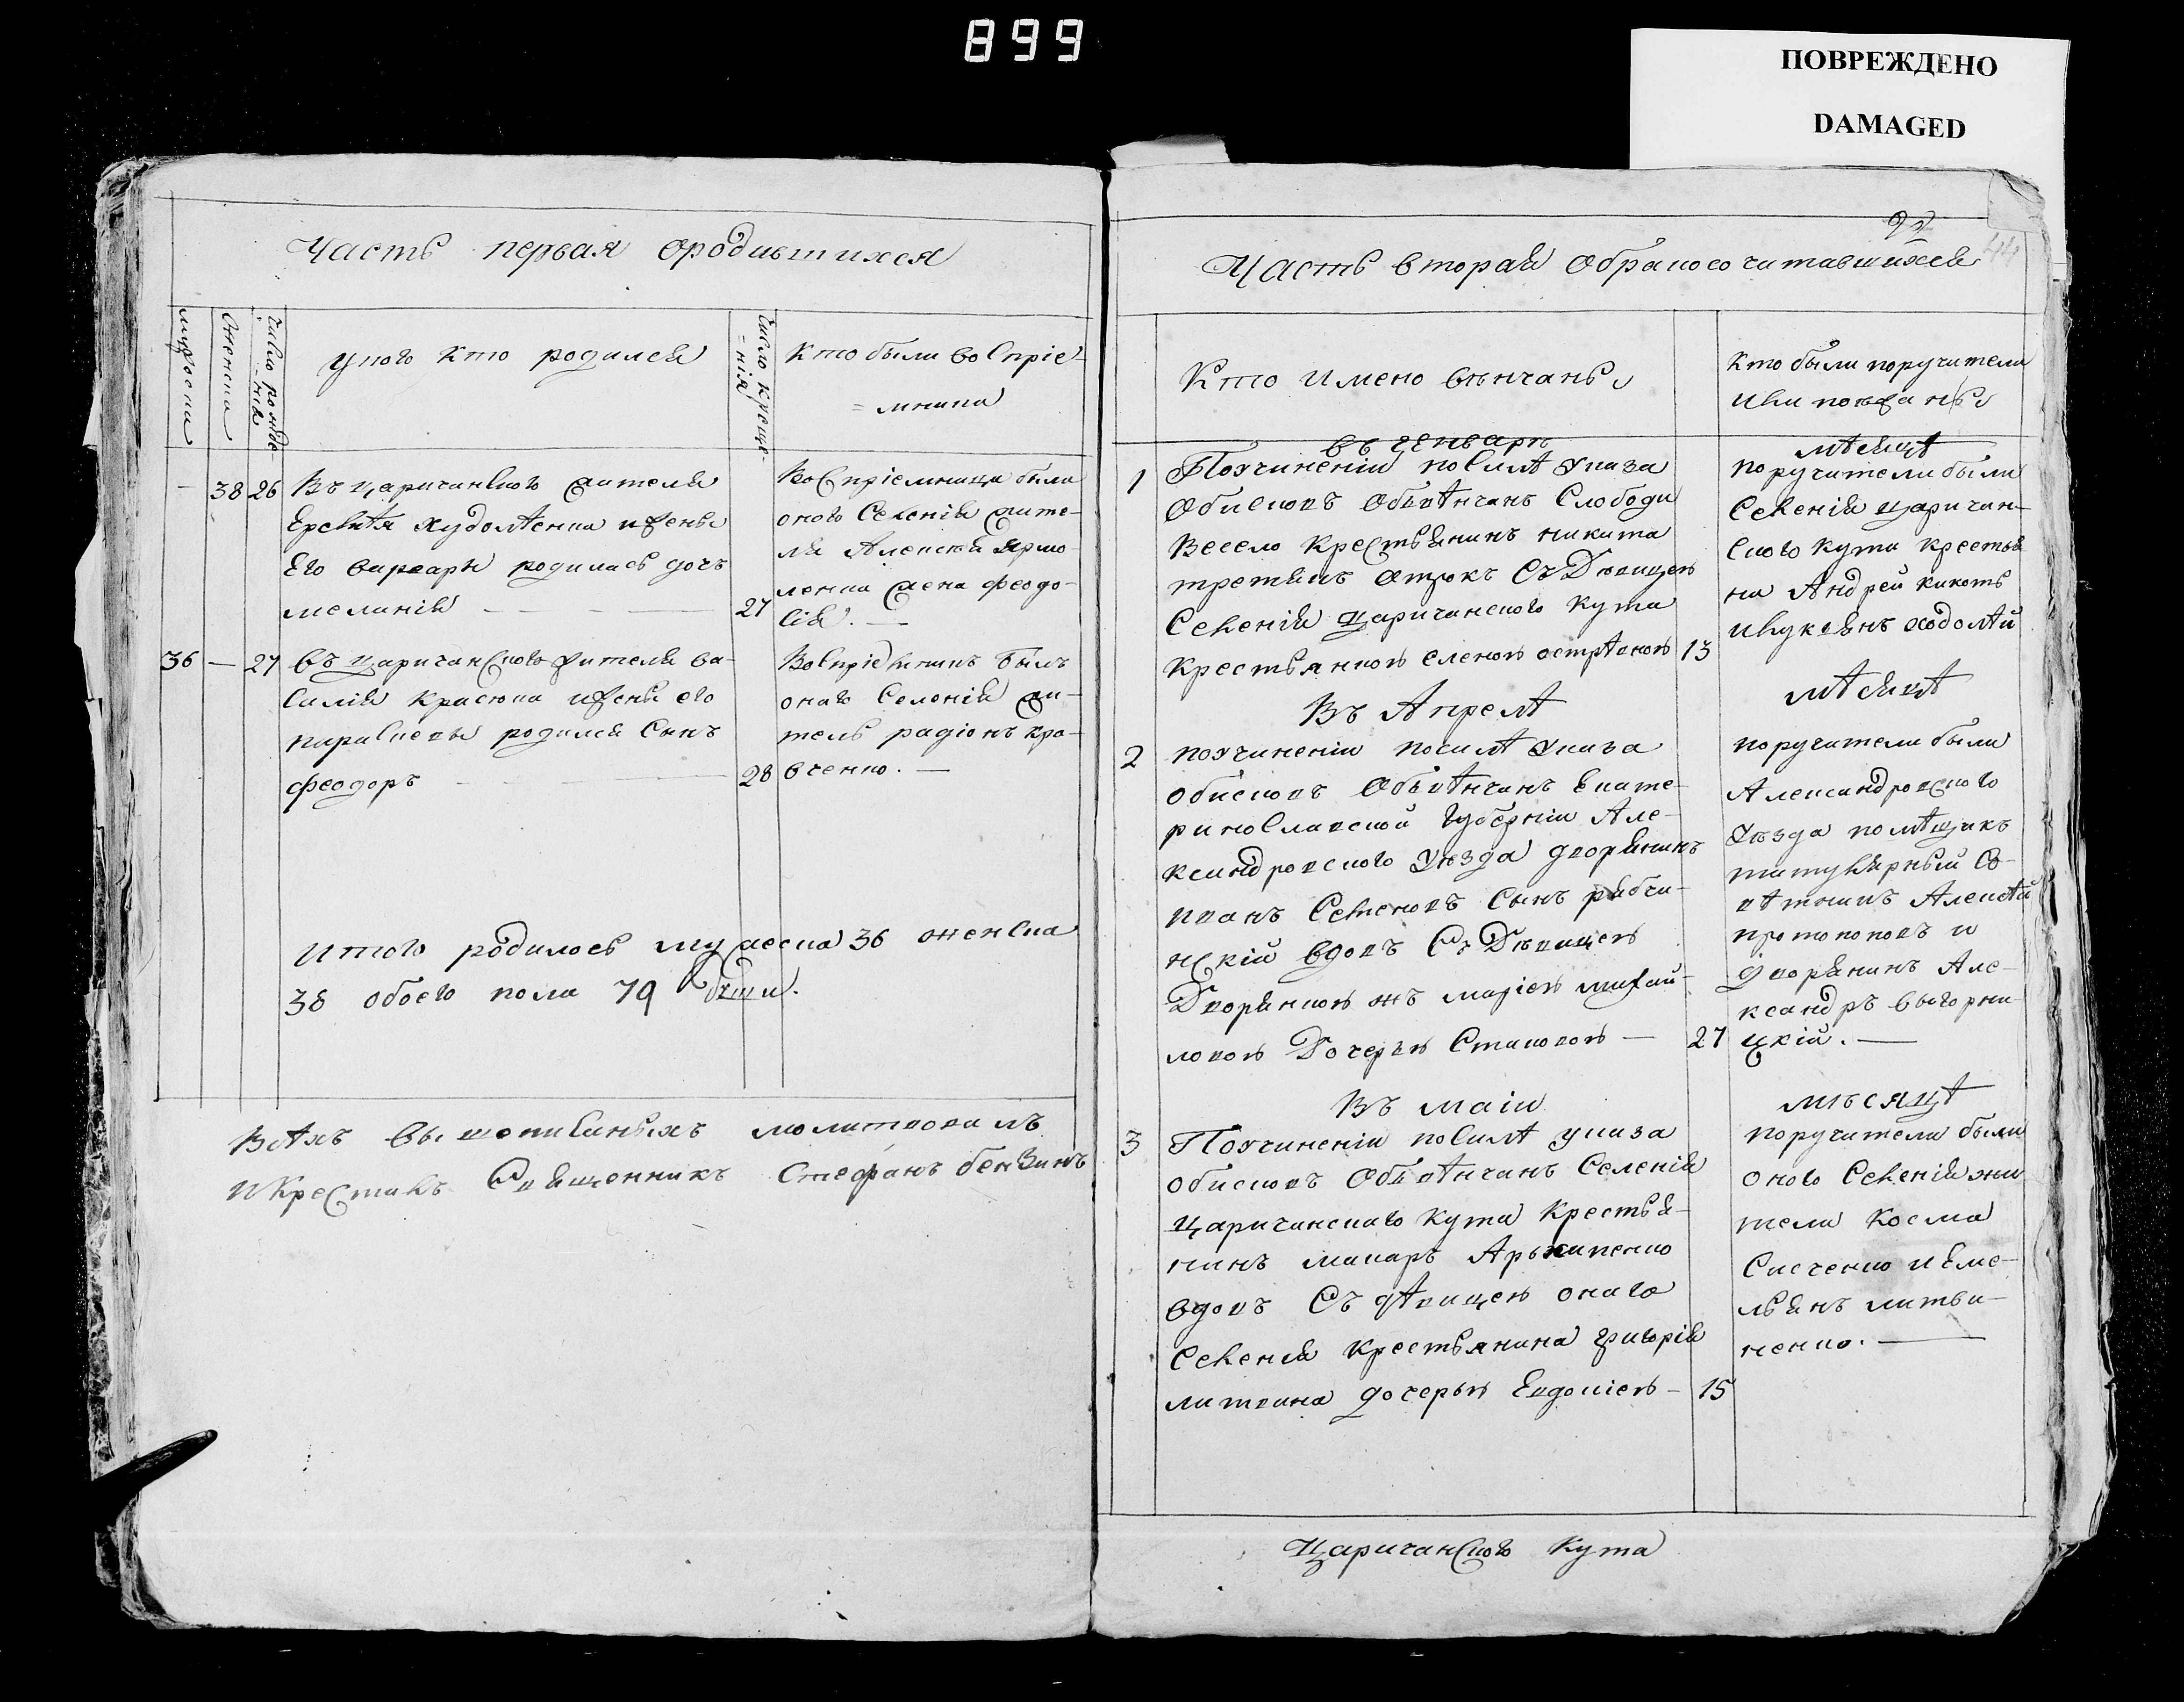 899
ПОВРЕЖДЕНО
DAMAGED
Часть первая ородившихся
мужеска
женска
число рожде-
нія
У кого кто родился
число креще-
= нія
Кто были воспріе-
= мники
- 38 26 Въ царичанского жителя
Ерсвѣтя худолѣенка и жены
Его варвары родилась дочь
меланія 27
Воспріемница была
оного Селенія жите-
ля Алексея Ярмо-
ленка жена феодо-
сія.
36 — 27 въ царичанского жителя ва-
силія красюка и жены его
параскевы родился Сынъ
феодоръ 28
Воспріемникъ былъ
онаго Селенія жи-
тель радіонъ кра-
вченко.
итого родилось мужеска 36 женска
38 обоего пола 79 душъ.
Всѣхъ вышеписанныхъ молитвовалъ
и Крестилъ Священникъ Стефанъ бензинъ
44
Часть вторая О бракосочитавшихся
Кто имено венчанъ
Кто были поручители
или поезжанѣ
въ генваре мѣсяцѣ
1 По учиненіи по силѣ указа
Обисковъ Обвѣнчанъ Слободи
Весело Крестьянинъ никита
третякъ отрокъ Съ Девицею
Селенія царичанского кута
крестьянкою еленою острѣкою 13
поручители были
Селенія царичан-
ского кута крестья
на Андрей кикоть
и лукьянъ ходолѣй
Въ Апрелѣ мѣсяцѣ
2 по учиненіи по силѣ указа
обисковъ Обвѣнчанъ Екате-
ринославской губерніи Але-
ксандровского уезда дворянинъ
иванъ Семеновъ Сынъ рябчи-
нскій вдовъ Съ Девицею
Дворянкою жъ маріею михай-
ловою Дочерью Стаковою — 27
поручители были
Александровского
уезда помѣщикъ
титулярный Со-
вѣтникъ Алексѣй
протопоповъ и
дворянинъ Але-
ксандръ выгорни-
цкій.
Въ маіи месяцѣ
3 По учиненіи по силѣ указа
обисковъ Обвѣнчанъ Селенія
Царичанскаго кута Крестья-
нинъ макаръ Архипенко
вдовъ Съ дѣвицею онаго
Селенія крестьянина григорія
литвина дочерью Евдокіею — 15
поручители были
оного Селенія жи
тели Косма
Сисченко и Еме-
льянъ литви-
ненко.
Царичанского кута